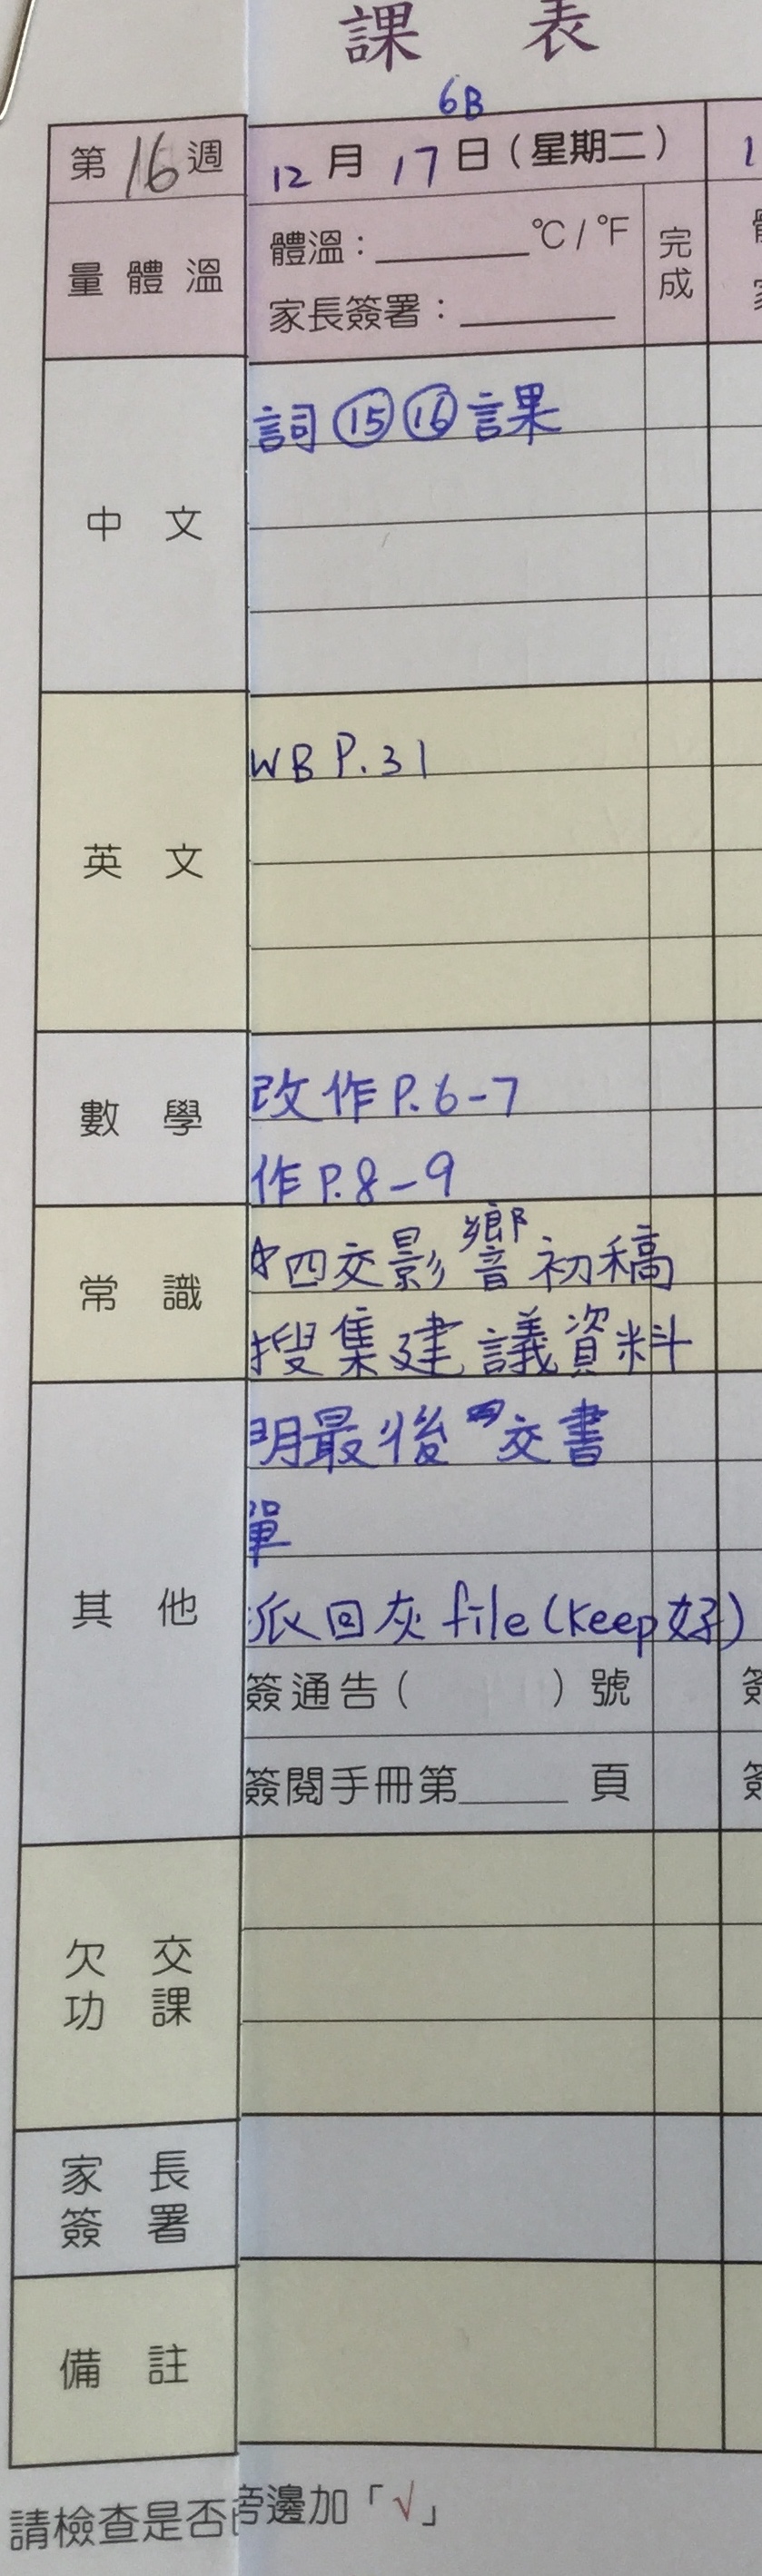 課 表
6B
第16週
12月17日(星期二)
量體溫
體溫：______°C/°F
家長簽署：______
完成
中文
詞⑮⑯課
英文
WB P.31
數學
改作P.6-7
作P.8-9
常識
☆四交影響初稿
搜集建議資料
其他
明最後 交書
單
派回灰file(keep好)
簽通告( )號
簽閱手冊第______頁
欠交功課
家長簽署
備註
請檢查是否旁邊加「√」